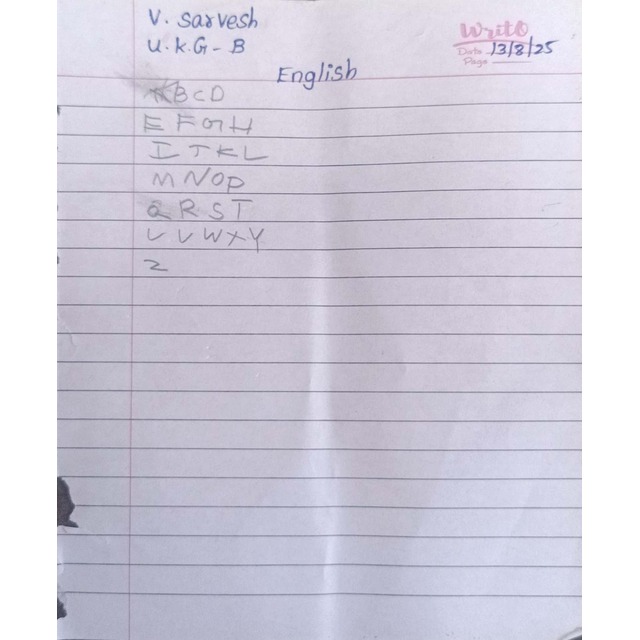 V. Sarvesh
U.K.G - B
Writo
Date 13/8/25
Page
English
ABCD
E F G H
I J K L
M N O P
Q R S T
U V W X Y
Z